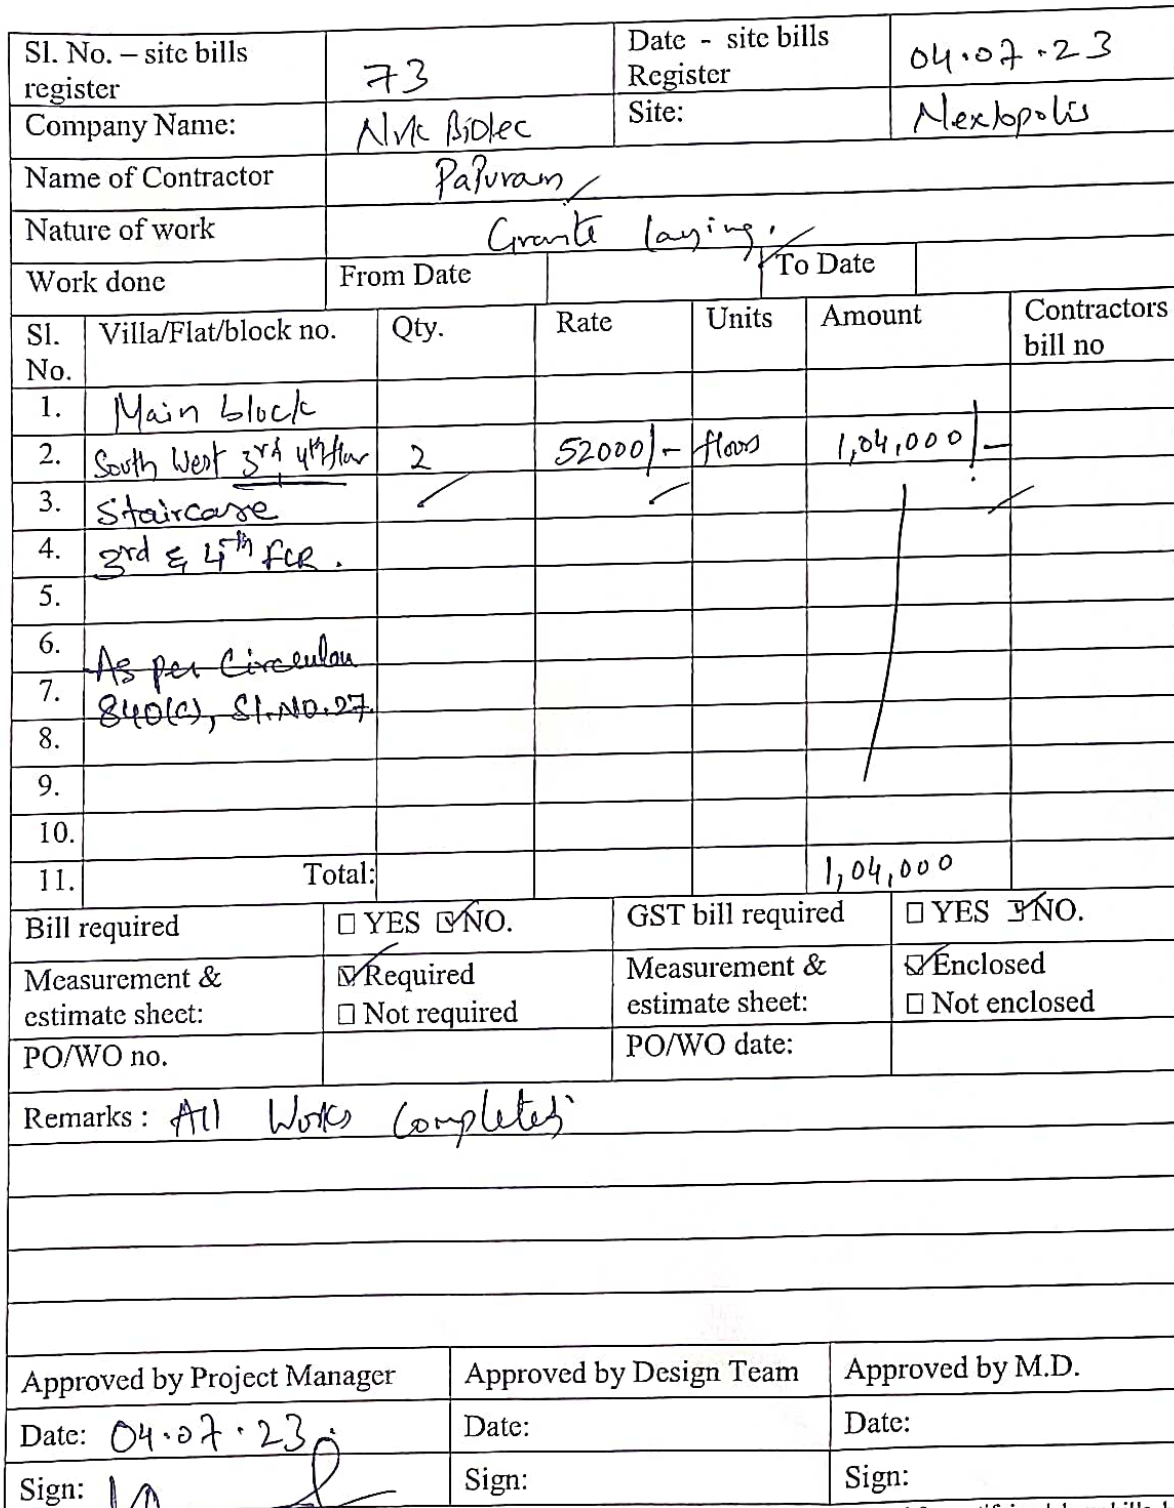 Sl. No. – site bills register 73 Date - site bills Register 04.07.23
Company Name: Nvk Biotec Site: Nextopolis
Name of Contractor Papuram
Nature of work Granite laying.
Work done From Date To Date
Sl. No. Villa/Flat/block no. Qty. Rate Units Amount Contractors bill no
1. Main block
2. South West 3rd 4th flur 2 52000/- floors 1,04,000/-
3. Staircase
4. 3rd & 4th FLR.
5.
6. As per Circular
7. 840(c), Sl.NO.27.
8.
9.
10.
11. Total: 1,04,000
Bill required ☐ YES ☑ NO. GST bill required ☐ YES ☑ NO.
Measurement & estimate sheet: ☑ Required ☐ Not required Measurement & estimate sheet: ☑ Enclosed ☐ Not enclosed
PO/WO no. PO/WO date:
Remarks : All Works Completed
Approved by Project Manager Approved by Design Team Approved by M.D.
Date: 04.07.23 Date: Date:
Sign: Sign: Sign: